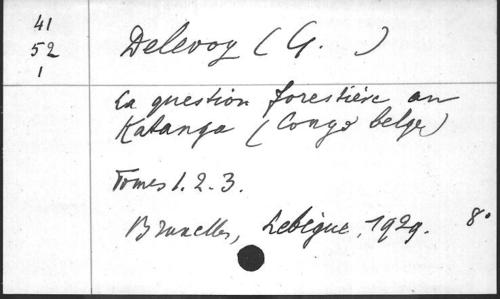 41
52
1
Delevoy (G. )
La question forestière au
Katanga (Congo belge)
Tomes 1. 2. 3.
Bruxelles, Lebègue, 1929. 8°